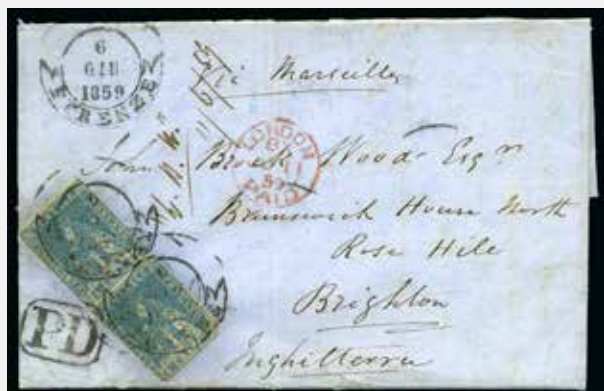 6
GIU
1859
FIRENZE
via Marseilles
LONDON
PAID
John Brock Wood Esqr
Brunswick House North
Rose Hill
Brighton
Inghilterra
PD